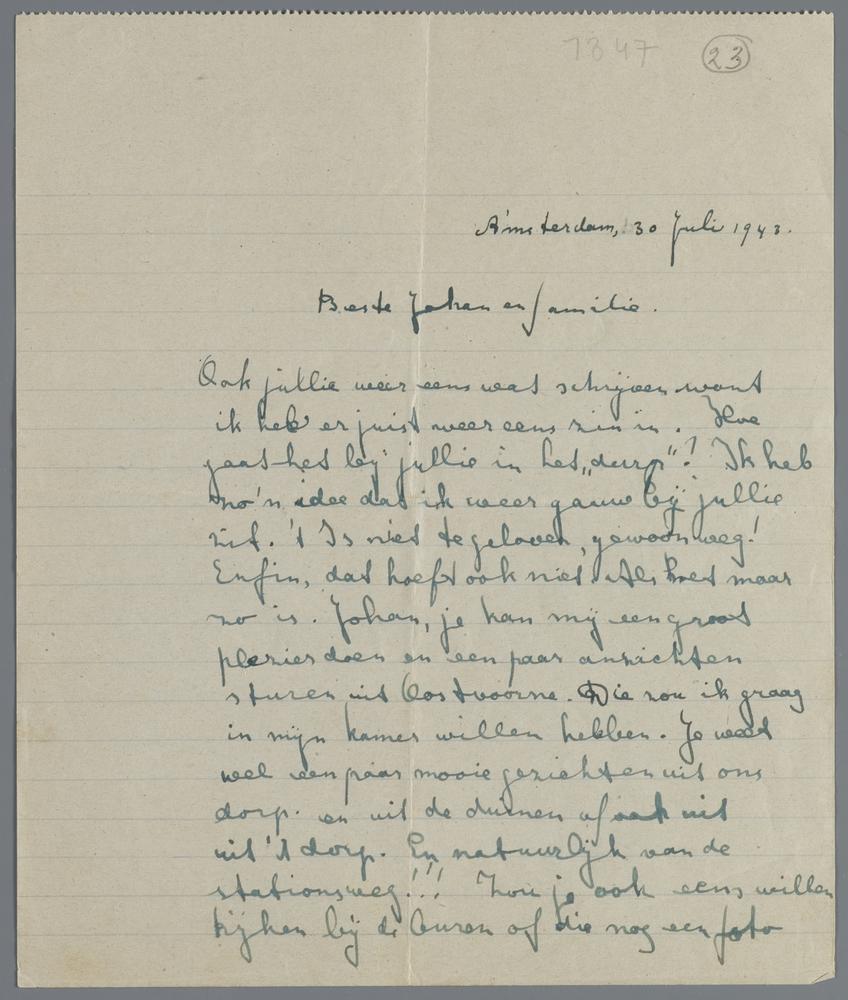 1347 23
Amsterdam, 30 Juli 1943.
Beste Johan en familie.
Ook jullie weer eens wat schrijven want
ik heb er juist weer eens zin in. Hoe
gaat het bij jullie in het „durp"? Ik heb
zo'n idee dat ik weer gauw bij jullie
zit. 't Is niet te geloven, gewoonweg!
Enfin, dat hoeft ook niet. Als het maar
zo is. Johan, je kan mij een groot
plezier doen en een paar anzichten
sturen uit Oostvoorne. Die zou ik graag
in mijn kamer willen hebben. Je weet
wel een paar mooie gezichten uit ons
dorp. en uit de duinen of ook uit
uit 't dorp. En natuurlijk van de
stationsweg!!! Zou je ook eens willen
kijken bij de buren of die nog een foto